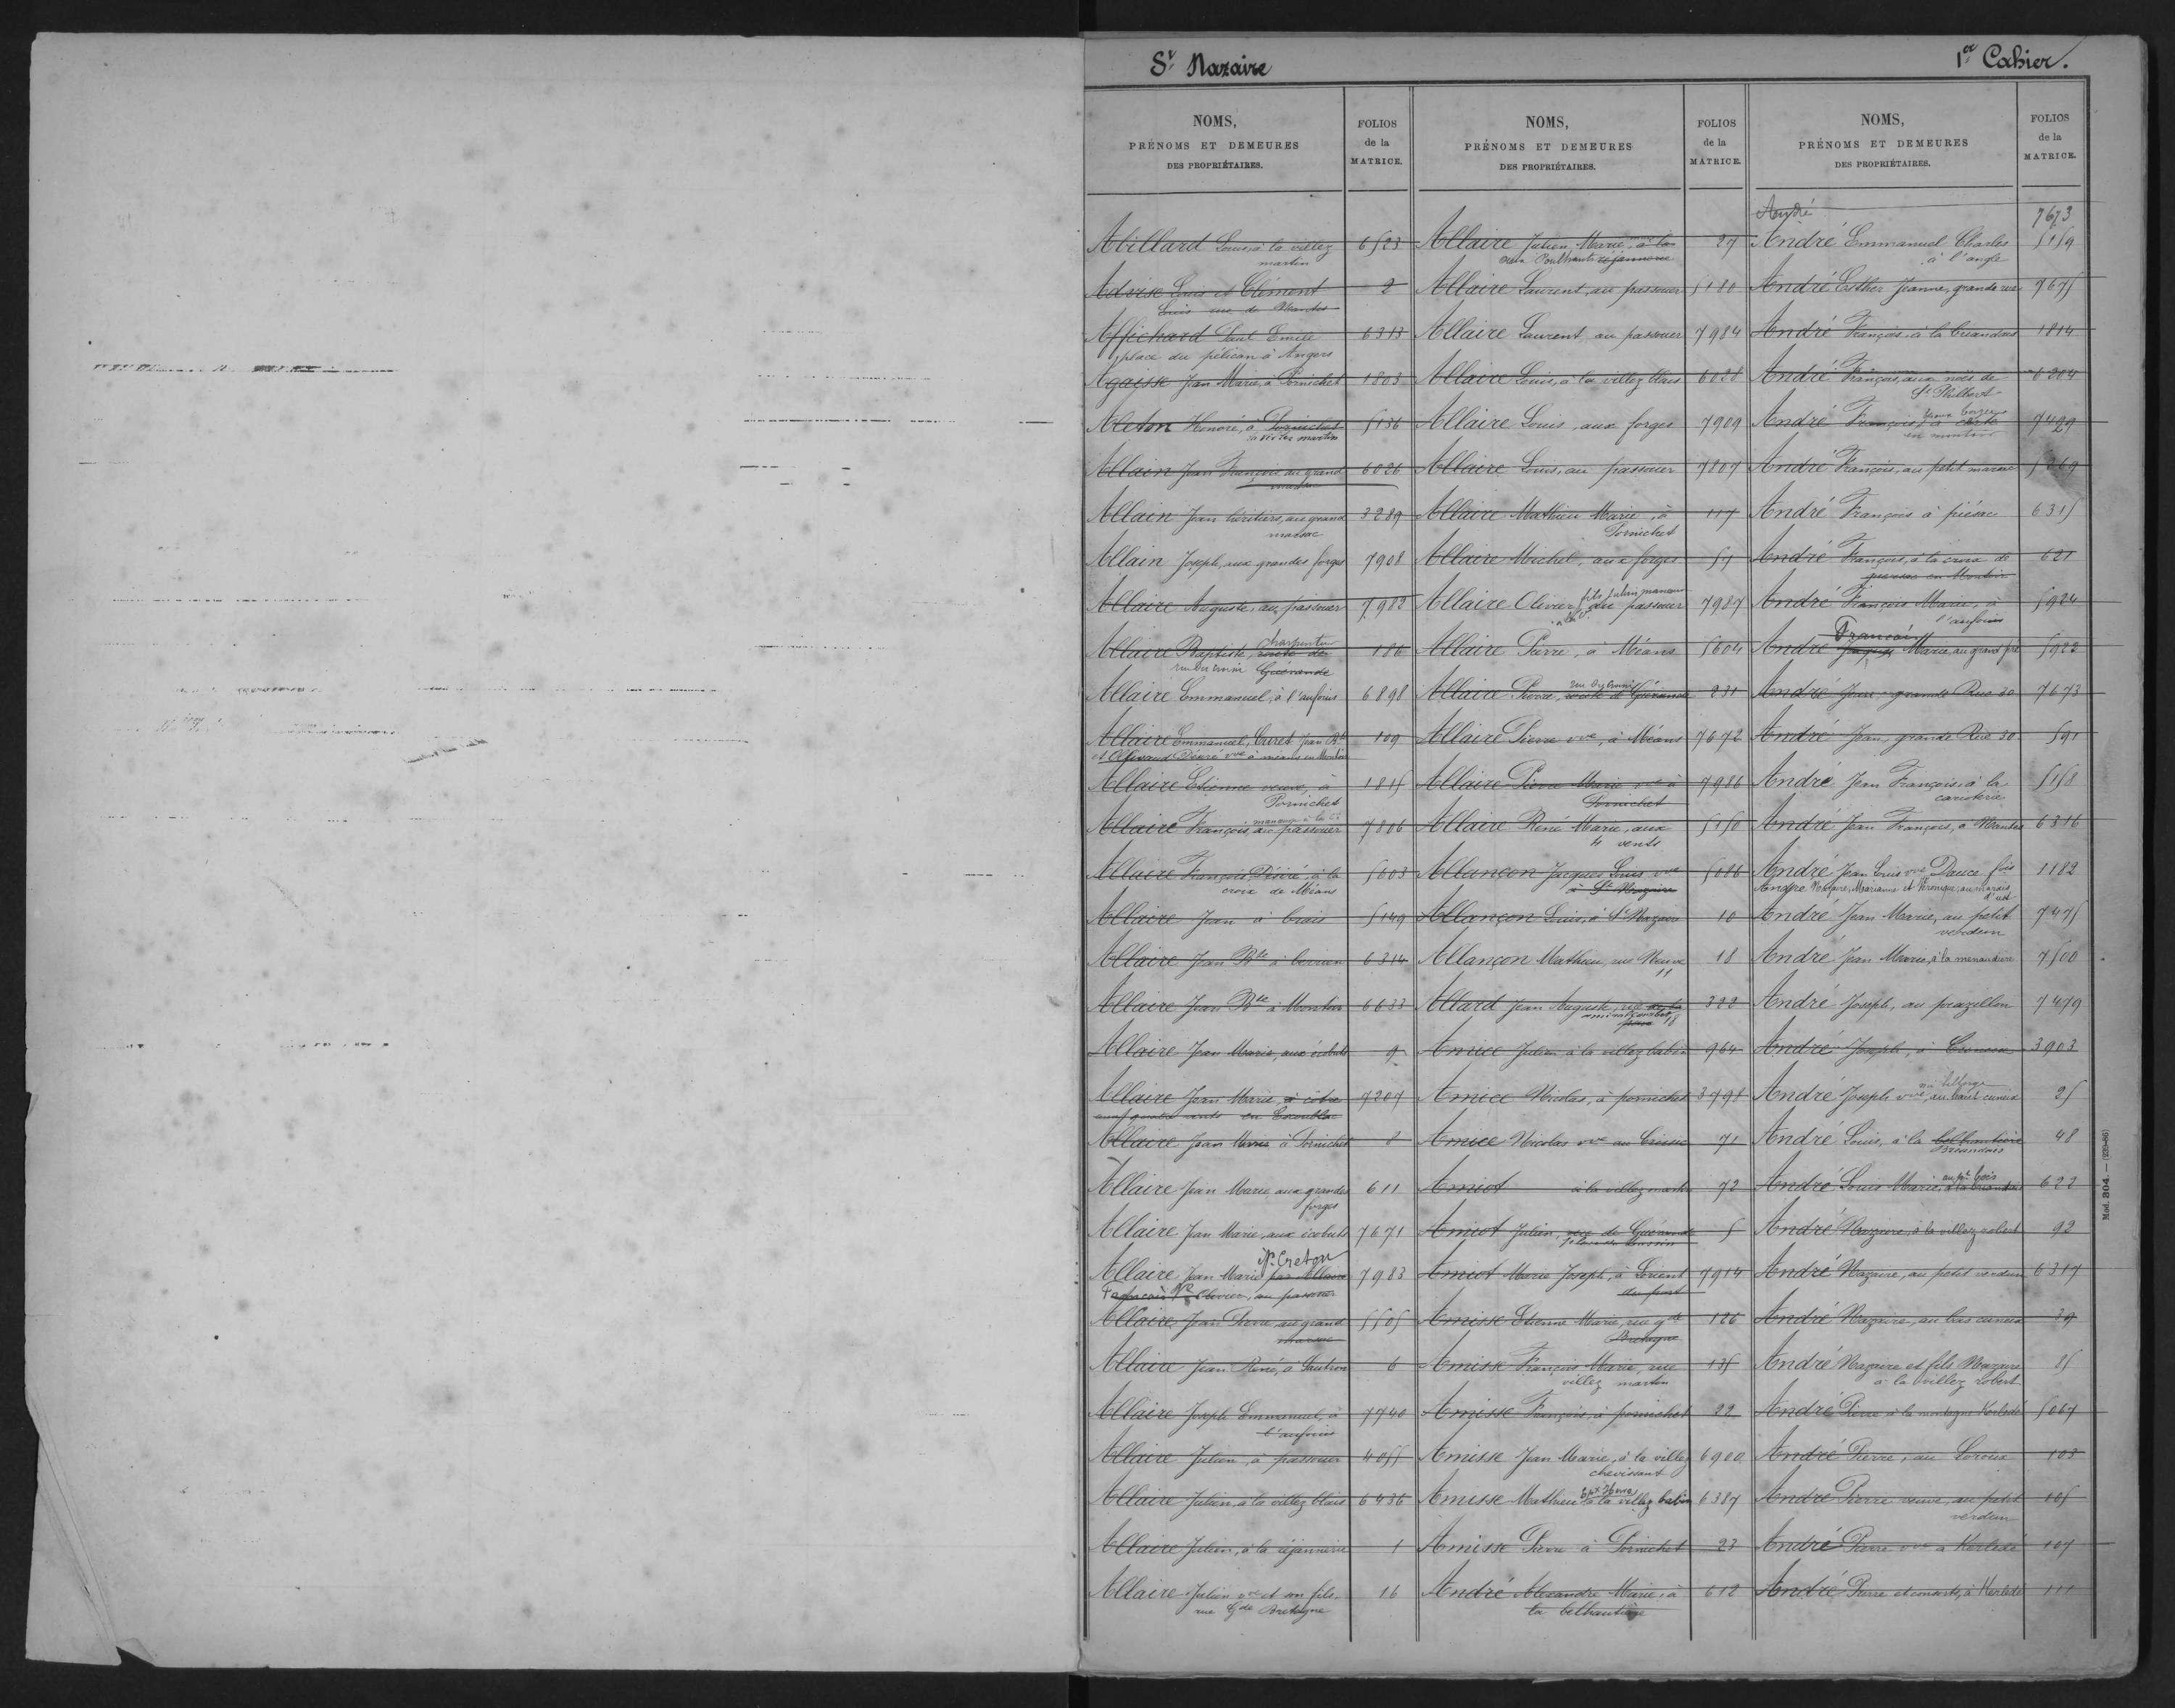 St Nazaire
1er Cahier.
NOMS,
PRÉNOMS ET DEMEURES
DES PROPRIÉTAIRES.
FOLIOS
de la
MATRICE.
Abillard Louis, à la villez 6523
martin
Advise Louis et Clément 2
Louis rue de Nantes
Affichard Paul Emile 6313
place du pélican à Angers
Agaisse Jean Marie, à Pornichet 1803
Aleton Honoré, à Pornichet 5136
Allain Jean François au grand 6026
Allain Jean héritiers, au grand 3289
marsac
Allain Joseph, aux grandes forges 7908
Allaire Auguste, au passouer 7982
Allaire Baptiste, charpentier route de 186
Guérande
Allaire Emmanuel, à l'anfouis 6898
Allaire Emmanuel, Curet Jean Bte 109
Allaire Etienne veuve, à 1815
Pornichet
Allaire François, au passouer 7806
Allaire François Désiré, à la 5603
croix de Méans
Allaire Jean à brais 5149
Allaire Jean Bte à 6314
Allaire Jean Bte à Montoir 6633
Allaire Jean Marie, aux écobuts 9
Allaire Jean Marie, 7207
en Escoublac
Allaire Jean Marie à Pornichet 8
Allaire Jean Marie aux grandes 611
forges
Allaire Jean Marie, aux écobuts 7671
Allaire Jean Marie 7983
Allaire Jean Pierre au grand 5505
marsac
Allaire Jean René, à Sautron 6
Allaire Joseph Emmanuel, à 7740
l'anfouis
Allaire Julien, à passouer 4055
Allaire Julien, à la villez blais 6436
Allaire Julien, à la réjannerie 1
Allaire Julien vve et son fils, 16
rue Gde Bretagne
NOMS,
PRÉNOMS ET DEMEURES
DES PROPRIÉTAIRES.
FOLIOS
de la
MATRICE.
Allaire Julien, Marie, à la 27
réjannerie
Allaire Laurent, au passouer 5180
Allaire Laurent au passouer 7984
Allaire Louis, à la villez blais 6038
Allaire Louis, aux forges 7909
Allaire Louis, au passouer 7807
Allaire Mathieu Marie, à 117
Pornichet
Allaire Michel, aux forges 51
Allaire Olivier au passouer 7987
Allaire Pierre, à Méans 5604
Allaire Pierre, route de Guérande 231
Allaire Pierre vve, à Méans 7672
Allaire Pierre Marie vve à 7986
Pornichet
Allaire René Marie, aux 5150
4 vents
Allançon Jacques Louis vve 5086
à St Nazaire
Allançon Louis, à St Nazaire 10
Allançon Mathieu, rue Neuve 18
11
Allard Jean Auguste 322
Amice Julien à la villez babin 964
Amice Nicolas, à pornichet 3798
Amice Nicolas vve au 71
Amiot à la villez martin 72
Amiot Julien, rue de Guérande 5
Amiot Marie Joseph, à Lorient 7914
du port
Amisse Etienne Marie, rue gde 126
Bretagne
Amisse François Marie, rue 135
villez martin
Amisse François, à pornichet 22
Amisse Jean Marie, à la villez 6900
chevissant
Amisse Mathieu à la villez babin 6387
Amisse Pierre à Pornichet 23
André Alexandre Marie, à 612
la belhautière
NOMS,
PRÉNOMS ET DEMEURES
DES PROPRIÉTAIRES.
FOLIOS
de la
MATRICE.
André 7673
André Emmanuel Charles 5159
à l'angle
André Esther Jeanne, grande rue 7675
André François, à la briandais 1814
André François, aux noës de 6204
St Philbert
André François, à 7429
André François, au petit marsac 5269
André François à piésac 6315
André François, à la croix de 621
en Montoir
André François Marie, à 5924
l'anfouis
André François Marie, au grand pré 5922
André Jean grande Rue 30 7673
André Jean, grande Rue 30 591
André Jean François à la 5158
caroterie
André Jean François, à Nantes 6316
André Jean Louis vve Dauce fois 1182
André Nazaire, Marianne et Véronique, au marais
André Jean Marie, au petit 7475
verdun
André Jean Marie, à la menaudière 7500
André Joseph, au prazillon 7479
André Joseph, à 3903
André Joseph vve, au haut cuneix 25
André Louis, à la belhautière 48
Briandais
André Louis Marie 622
André Nazaire, à la villez robert 92
André Nazaire, au petit verdun 6317
André Nazaire, au bas cuneix 39
André Nazaire et fils Nazaire 85
à la villez robert
André Pierre à la montagne Kerlédé 5067
André Pierre, au Loroux 103
André Pierre veuve, au petit 105
verdun
André Pierre vve à Kerlédé 107
André Pierre et consorts, à Kerlédé 111
Mod. 304. — (229-86)